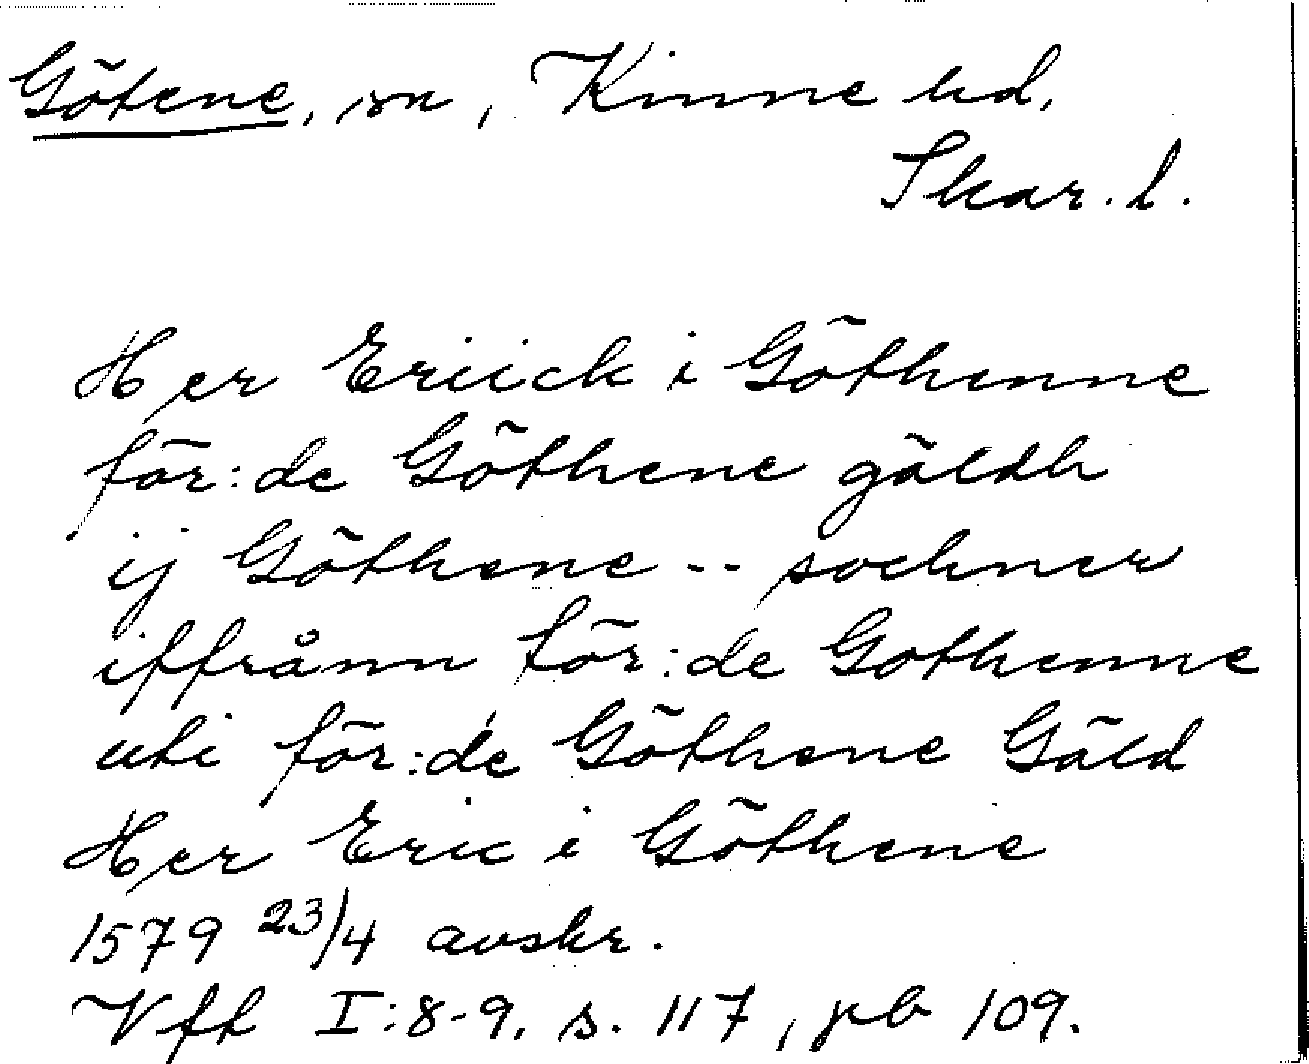 Götene, sn, Kinne hd.
Skar. l.
Her Eriick i Göthenne
för:de Göthene gäldh
ij Göthene -- sochner
iffrånn för:de Gothenne
uti för:de Göthene Gäld
Her Eric i Göthene
1579 23/4 avskr.
Vft I:8-9, s. 117, pb 109.